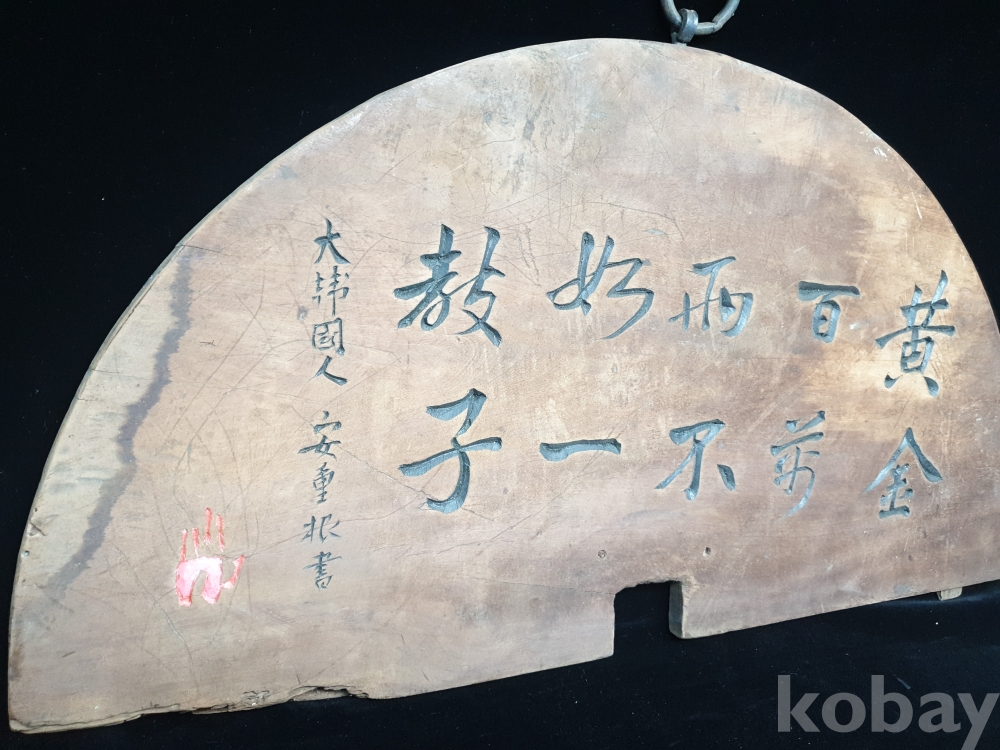 黃金
百萬
兩不
如一
敎子
大韓國人 安重根書
kobay